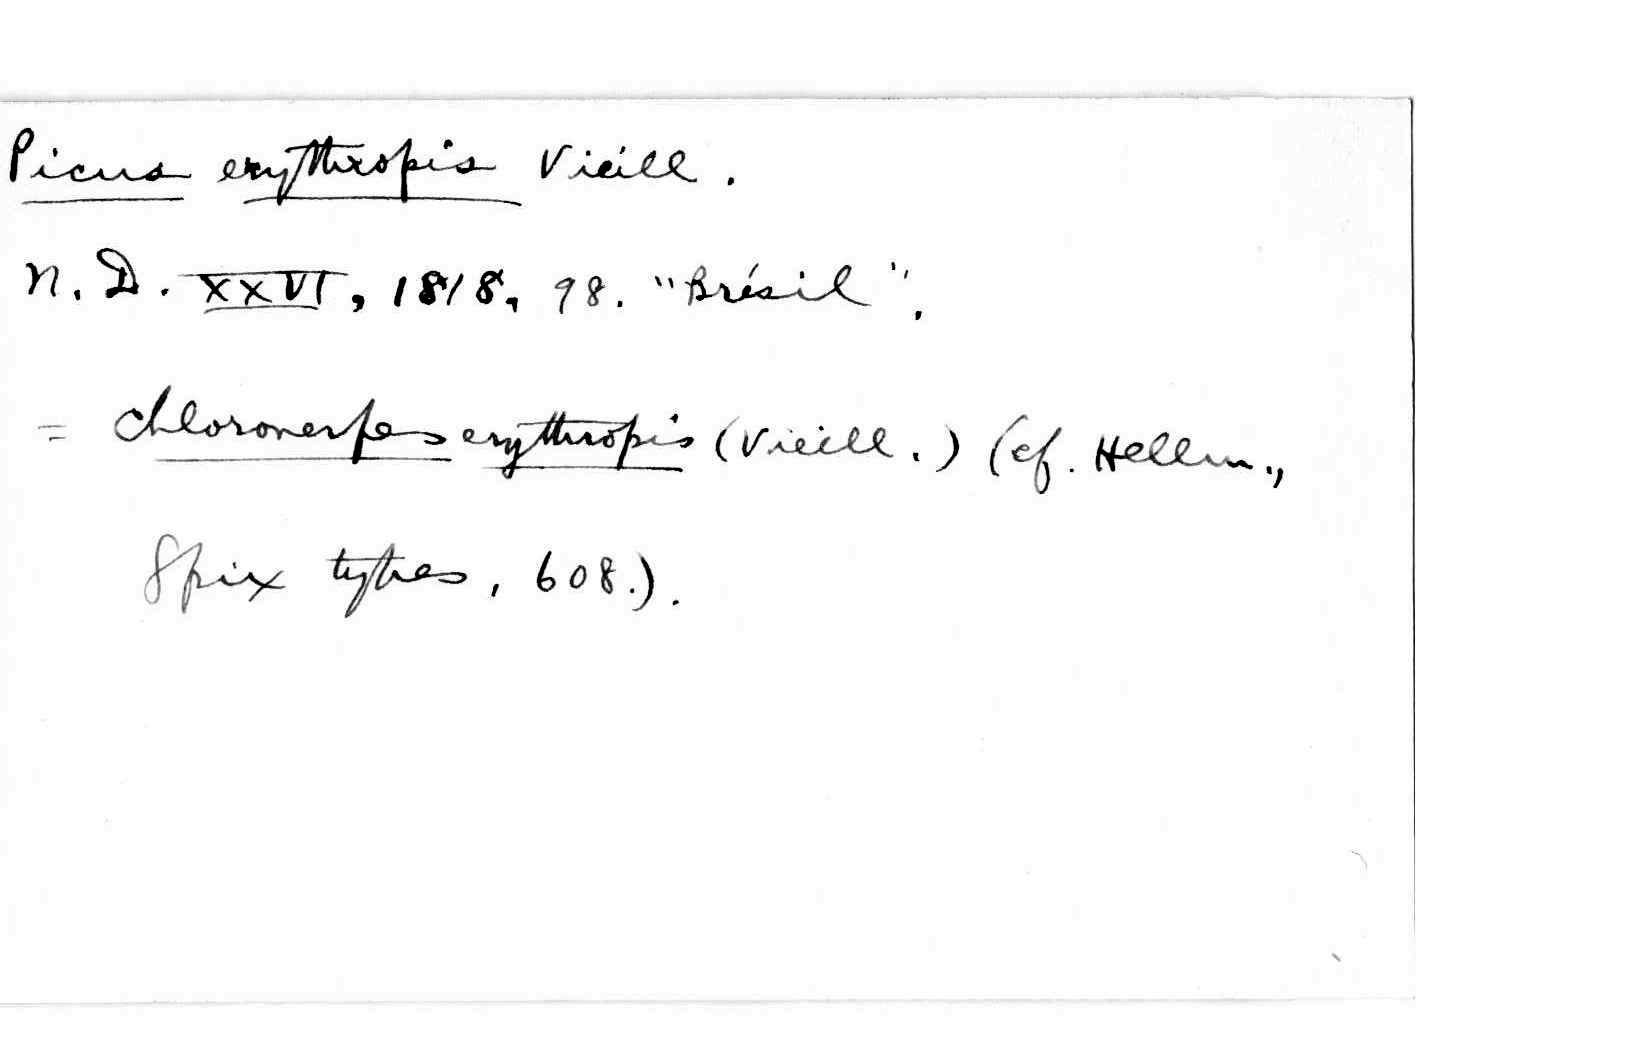 Picus erythropis Vieill.
N. D. XXVI, 1818, 98. "Brésil".
= Chloronerpes erythropis (Vieill.) (cf. Hellm.,
Spix types, 608.).